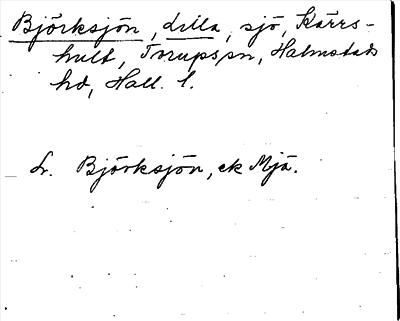 Björksjön, Lilla, sjö, Kärrs-
hult, Torups sn, Halmstads
hd, Hall. l.
Björksjön, ek Mjä.